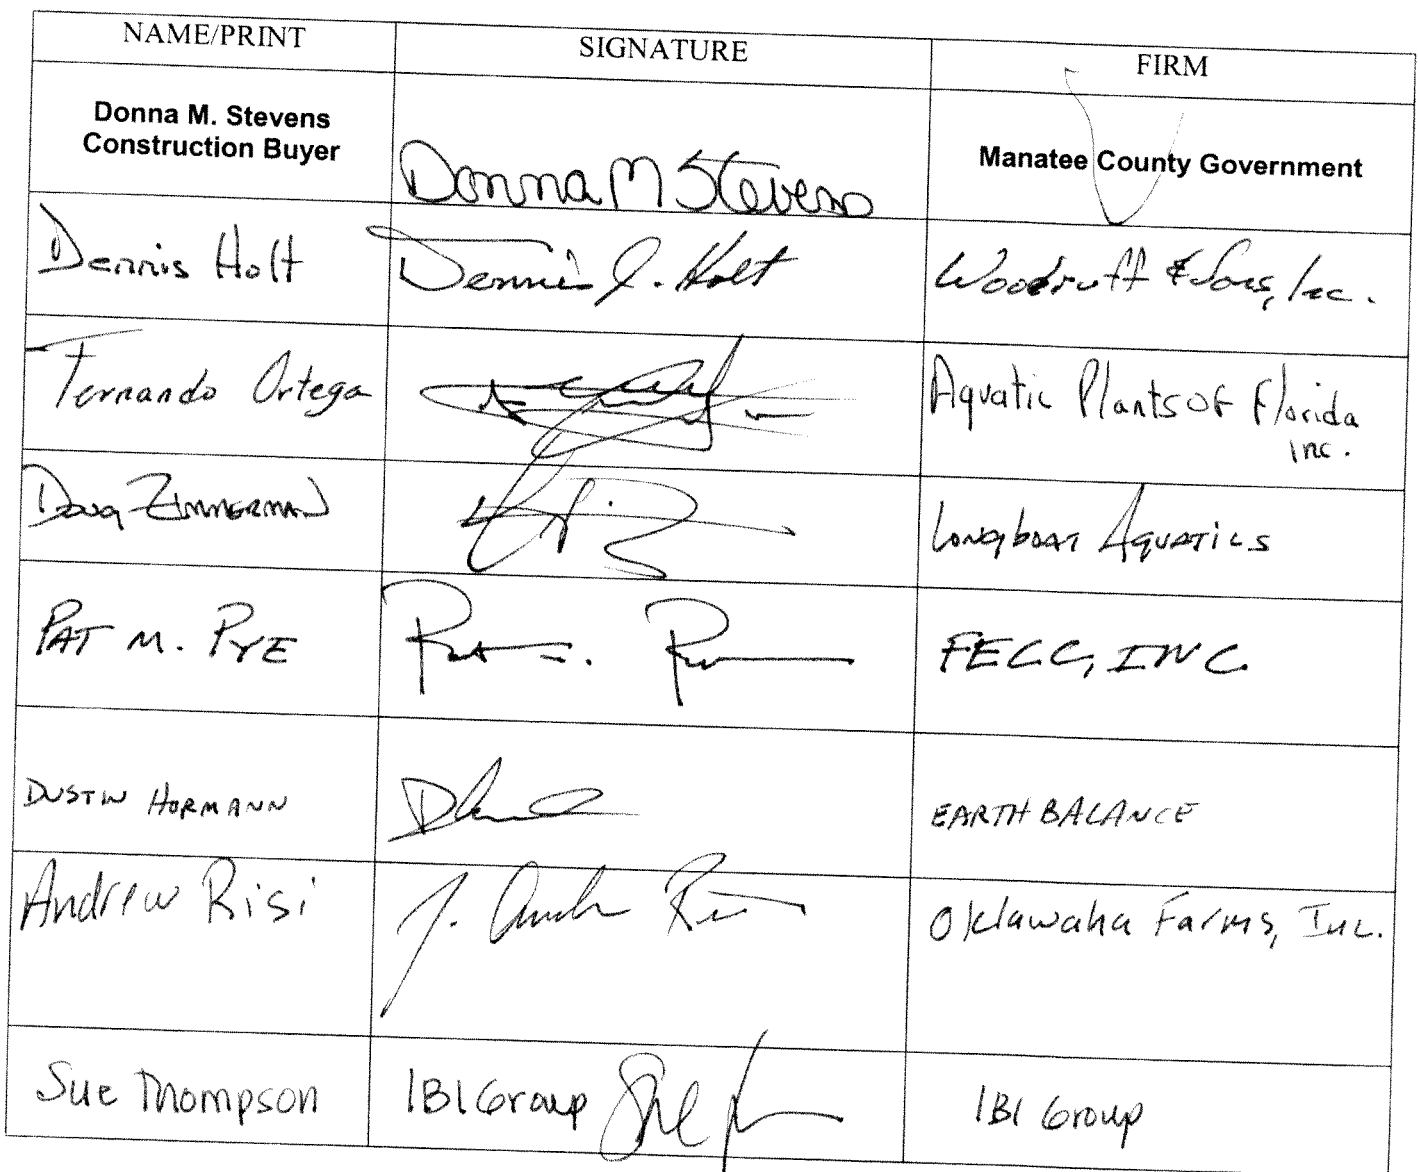 NAME/PRINT SIGNATURE FIRM
Donna M. Stevens
Construction Buyer
Donna M Stevens
Manatee County Government
Dennis Holt Dennis J. Holt Woodruff & Sons, Inc.
Fernando Ortega Aquatic Plants OF Florida
inc.
Doug ZIMMERMAN Longboat AQUATICS
PAT M. PYE FECC, INC.
DUSTIN HORMANN EARTHBALANCE
Andrew Risi J. Oklawaha Farms, Inc.
Sue Thompson IBI Group IBI Group